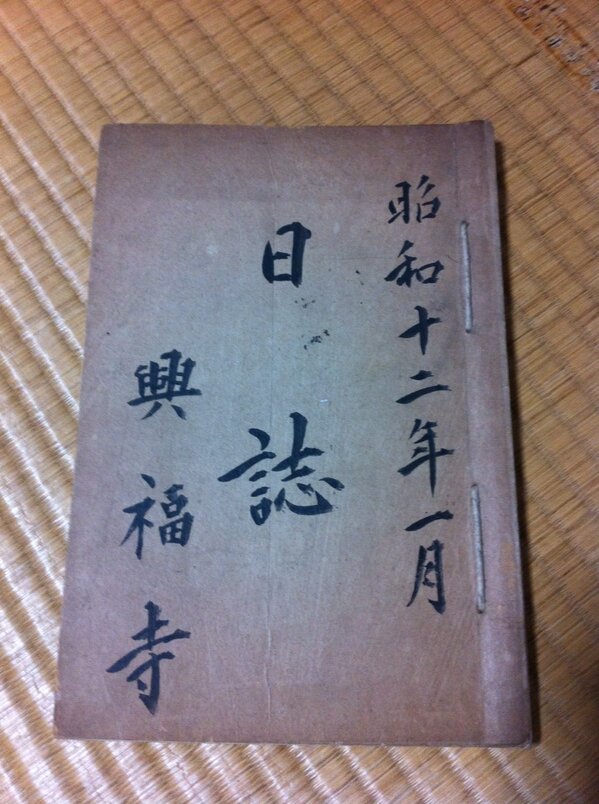 昭和十二年一月
日誌
興福寺